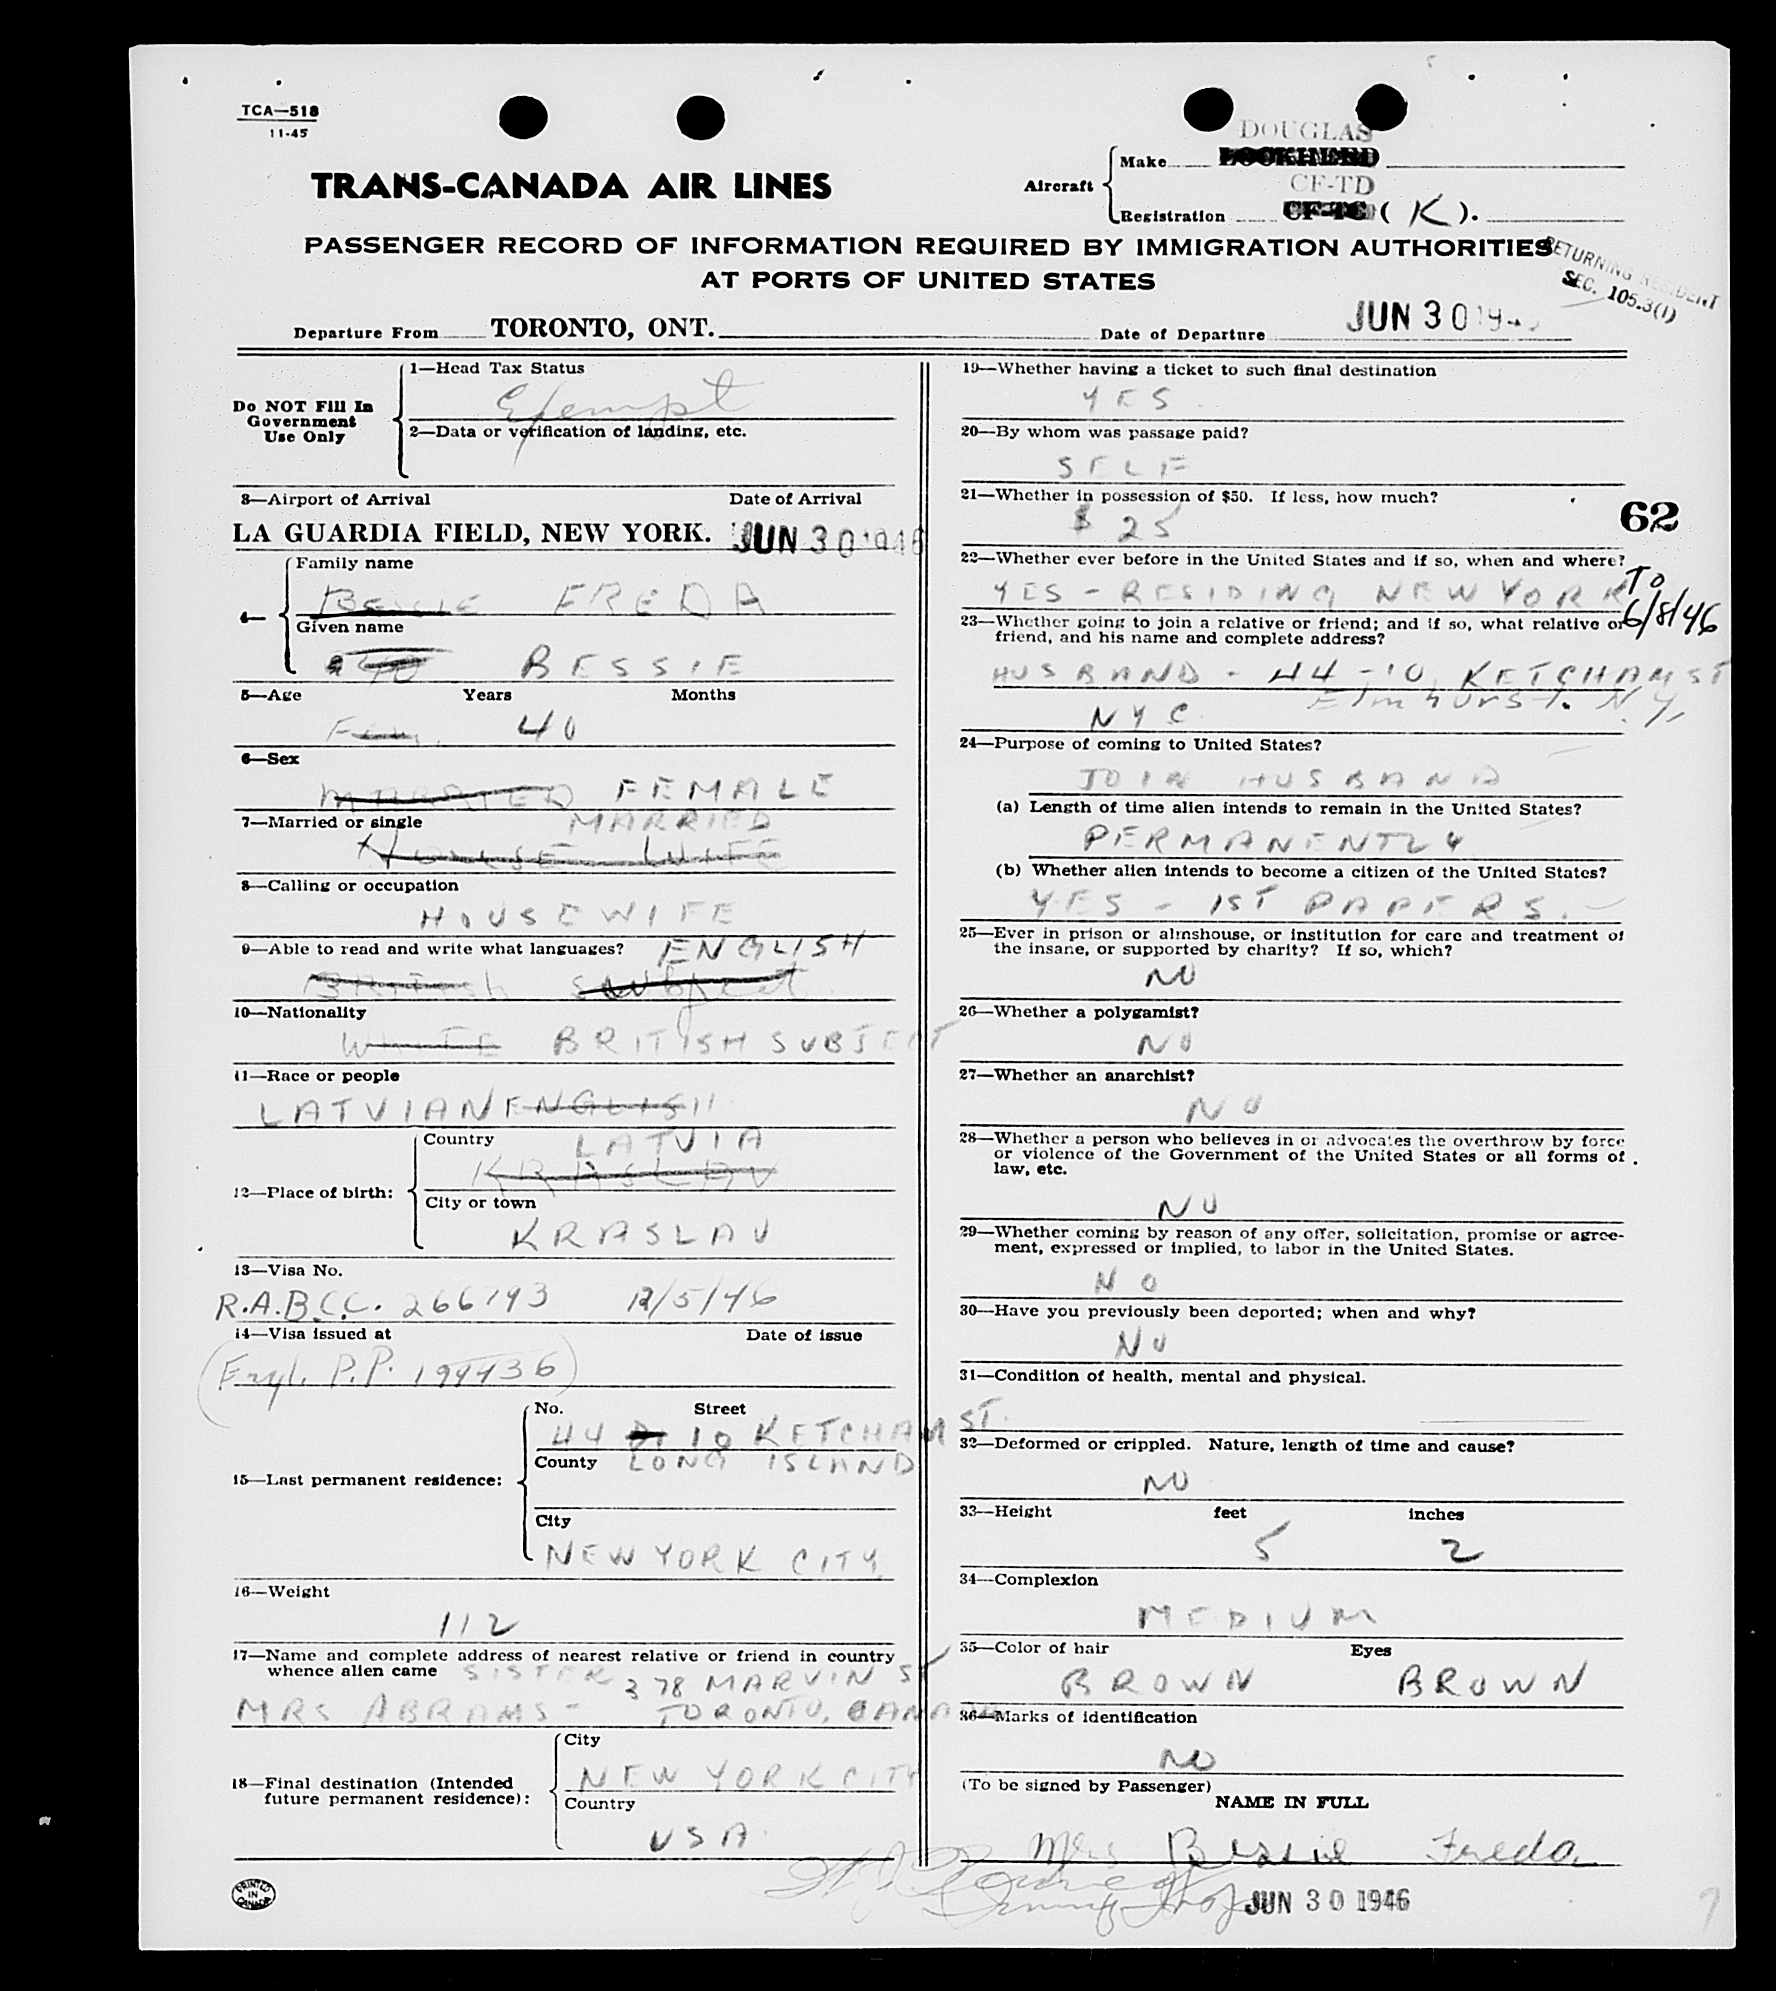 TCA—518
11-45
TRANS-CANADA AIR LINES
Aircraft
DOUGLAS
Make LOCKHEED
CF-TD
Registration CF-TC ( K ).
PASSENGER RECORD OF INFORMATION REQUIRED BY IMMIGRATION AUTHORITIES
AT PORTS OF UNITED STATES
RETURNING RESIDENT
SEC. 105.3(1)
Departure From TORONTO, ONT. Date of Departure JUN 30 194
Do NOT Fill In
Government
Use Only
1—Head Tax Status
Exempt
2—Data or verification of landing, etc.
3—Airport of Arrival Date of Arrival
LA GUARDIA FIELD, NEW YORK. JUN 30 1946
4—
Family name
Bessie FREDA
Given name
40 BESSIE
5—Age Years Months
Fem. 40
6—Sex
MARRIED FEMALE
7—Married or single MARRIED
HOUSE WIFE
8—Calling or occupation
HOUSEWIFE
9—Able to read and write what languages? ENGLISH
British subject
10—Nationality
WHITE BRITISH SUBJECT
11—Race or people
LATVIAN ENGLISH
12—Place of birth:
Country LATVIA
KRASLAV
City or town
KRASLAV
13—Visa No.
R.A.B.C.C. 266793 12/5/46
14—Visa issued at Date of issue
(Engl. P.P. 199436)
15—Last permanent residence:
No. Street
44 10 KETCHAM ST.
County LONG ISLAND
City
NEW YORK CITY
16—Weight
112
17—Name and complete address of nearest relative or friend in country
whence alien came SISTER 378 MARVIN ST
MRS ABRAMS - TORONTO, CANADA
18—Final destination (Intended
future permanent residence):
City
NEW YORK CITY
Country
USA
PRINTED
IN
CANADA
19—Whether having a ticket to such final destination
YES
20—By whom was passage paid?
SELF
21—Whether in possession of $50. If less, how much?
$ 25
62
22—Whether ever before in the United States and if so, when and where?
YES - RESIDING NEW YORK TO
6/8/46
23—Whether going to join a relative or friend; and if so, what relative or
friend, and his name and complete address?
HUSBAND - 44-10 KETCHAM ST
NYC Elmhurst. N.Y.
24—Purpose of coming to United States?
JOIN HUSBAND
(a) Length of time alien intends to remain in the United States?
PERMANENTLY
(b) Whether alien intends to become a citizen of the United States?
YES - 1ST PAPERS.
25—Ever in prison or almshouse, or institution for care and treatment of
the insane, or supported by charity? If so, which?
NO
26—Whether a polygamist?
NO
27—Whether an anarchist?
NO
28—Whether a person who believes in or advocates the overthrow by force
or violence of the Government of the United States or all forms of
law, etc.
NO
29—Whether coming by reason of any offer, solicitation, promise or agree-
ment, expressed or implied, to labor in the United States.
NO
30—Have you previously been deported; when and why?
NO
31—Condition of health, mental and physical.
32—Deformed or crippled. Nature, length of time and cause?
NO
33—Height feet inches
5 2
34—Complexion
MEDIUM
35—Color of hair Eyes
BROWN BROWN
36—Marks of identification
NO
(To be signed by Passenger)
NAME IN FULL
Mrs Bessie Freda
JUN 30 1946